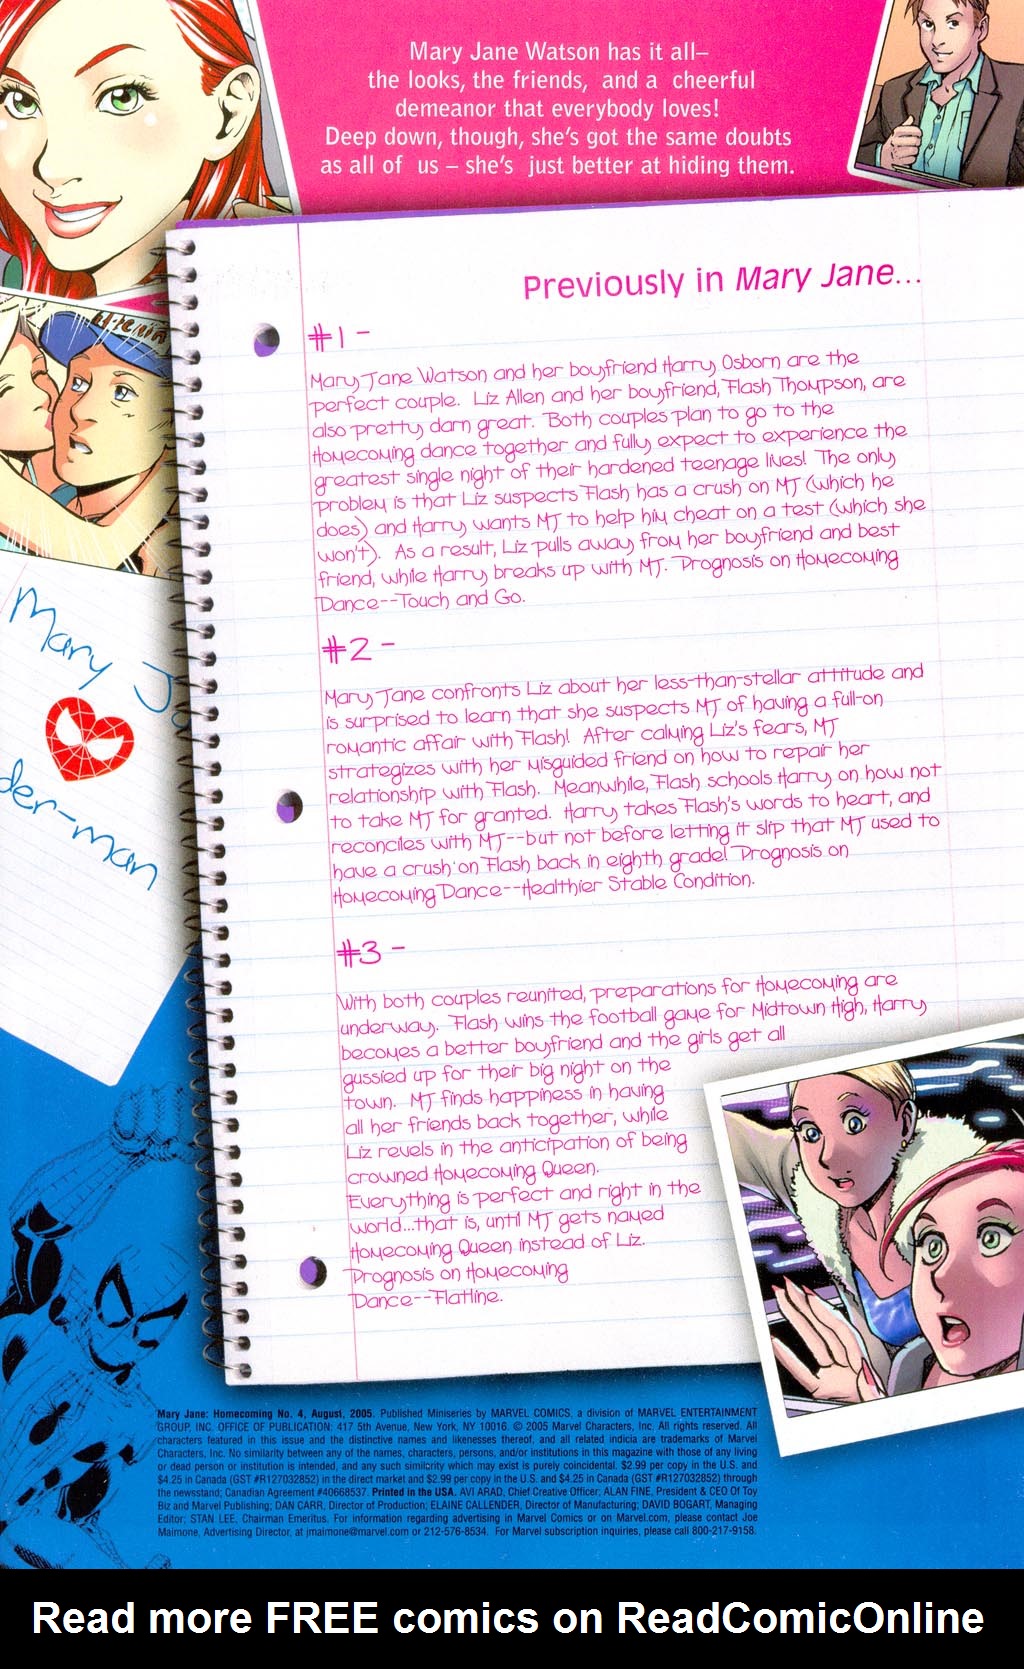 Mary Jane Watson has it all–
the looks, the friends, and a cheerful
demeanor that everybody loves!
Deep down, though, she's got the same doubts
as all of us – she's just better at hiding them.
Previously in Mary Jane...
#1 –
Mary Jane Watson and her boyfriend Harry Osborn are the
perfect couple. Liz Allen and her boyfriend, Flash Thompson, are
also pretty darn great. Both couples plan to go to the
Homecoming dance together and fully expect to experience the
greatest single night of their hardened teenage lives! The only
problem is that Liz suspects Flash has a crush on MJ (which he
does) and Harry wants MJ to help him cheat on a test (which she
won't). As a result, Liz pulls away from her boyfriend and best
friend, while Harry breaks up with MJ. Prognosis on Homecoming
Dance--Touch and Go.
#2 –
Mary Jane confronts Liz about her less-than-stellar attitude and
is surprised to learn that she suspects MJ of having a full-on
romantic affair with Flash! After calming Liz's fears, MJ
strategizes with her misguided friend on how to repair her
relationship with Flash. Meanwhile, Flash schools Harry on how not
to take MJ for granted. Harry takes Flash's words to heart, and
reconciles with MJ--but not before letting it slip that MJ used to
have a crush on Flash back in eighth grade! Prognosis on
Homecoming Dance--Healthier Stable Condition.
#3 –
With both couples reunited, preparations for Homecoming are
underway. Flash wins the football game for Midtown High, Harry
becomes a better boyfriend and the girls get all
gussied up for their big night on the
town. MJ finds happiness in having
all her friends back together, while
Liz revels in the anticipation of being
crowned Homecoming Queen.
Everything is perfect and right in the
world...that is, until MJ gets named
Homecoming Queen instead of Liz.
Prognosis on Homecoming
Dance--Flatline.
Mary J
der-man
Mary Jane: Homecoming No. 4, August, 2005. Published Miniseries by MARVEL COMICS, a division of MARVEL ENTERTAINMENT
GROUP, INC. OFFICE OF PUBLICATION: 417 5th Avenue, New York, NY 10016. © 2005 Marvel Characters, Inc. All rights reserved. All
characters featured in this issue and the distinctive names and likenesses thereof, and all related indicia are trademarks of Marvel
Characters, Inc. No similarity between any of the names, characters, persons, and/or institutions in this magazine with those of any living
or dead person or institution is intended, and any such similarity which may exist is purely coincidental. $2.99 per copy in the U.S. and
$4.25 in Canada (GST #R127032852) in the direct market and $2.99 per copy in the U.S. and $4.25 in Canada (GST #R127032852) through
the newsstand; Canadian Agreement #40668537. Printed in the USA. AVI ARAD, Chief Creative Officer; ALAN FINE, President & CEO Of Toy
Biz and Marvel Publishing; DAN CARR, Director of Production; ELAINE CALLENDER, Director of Manufacturing; DAVID BOGART, Managing
Editor; STAN LEE, Chairman Emeritus. For information regarding advertising in Marvel Comics or on Marvel.com, please contact Joe
Maimone, Advertising Director, at jmaimone@marvel.com or 212-576-8534. For Marvel subscription inquiries, please call 800-217-9158.
Read more FREE comics on ReadComicOnline